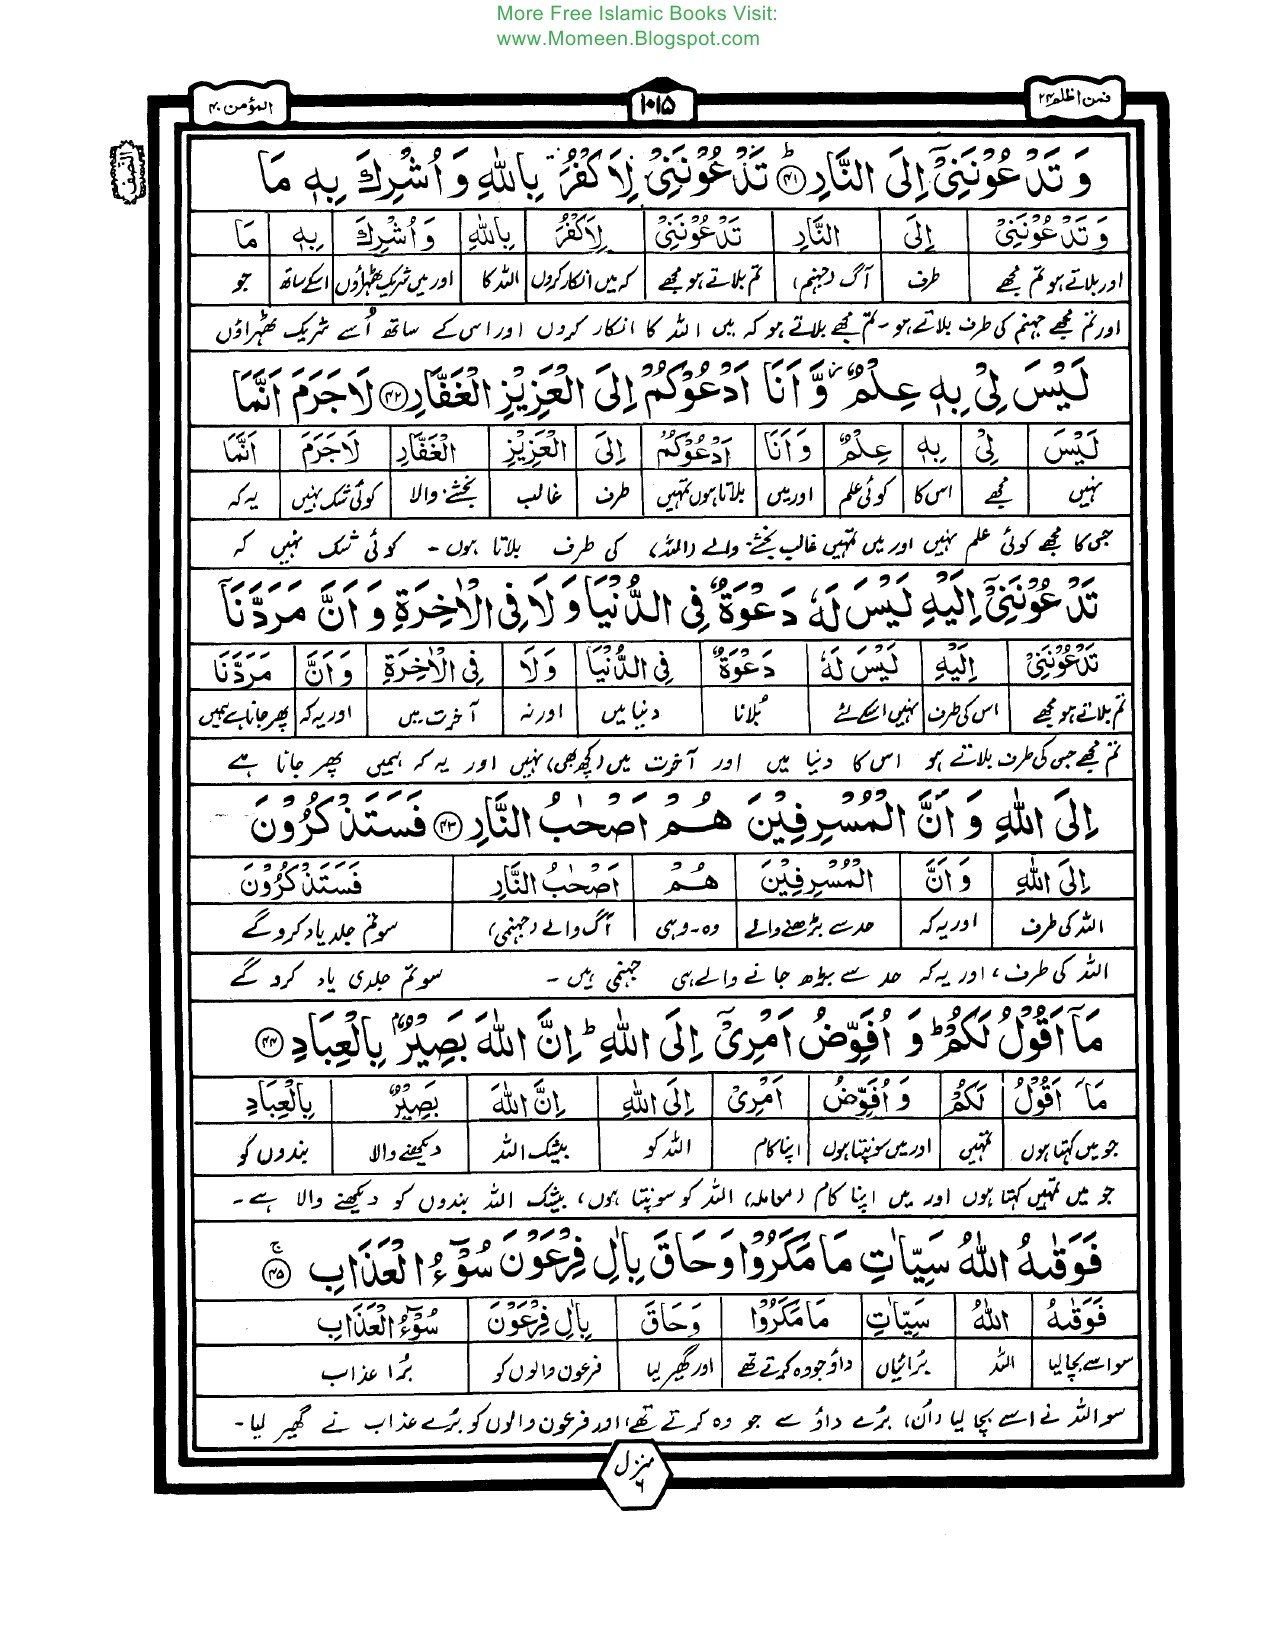 More Free Islamic Books Visit:
www.Momeen.Blogspot.com
فمن اظلم ۲۴
۱۰۱۵
المؤمن ۴۰
النصف
وَتَدْعُوْنَنِیْۤ اِلَی النَّارِ ؕ﴿۴۱﴾ تَدْعُوْنَنِیْ لِاَكْفُرَ بِاللّٰهِ وَ اُشْرِكَ بِهٖ مَا
وَتَدْعُوْنَنِیْۤ اِلَی النَّارِ تَدْعُوْنَنِیْ لِاَكْفُرَ بِاللّٰهِ وَاُشْرِكَ بِهٖ مَا
اور بلاتے ہو تم مجھے طرف آگ (جہنم) تم بلاتے ہو مجھے کہ میں انکار کروں اللہ کا اور میں شریک ٹھہراؤں اسکے ساتھ جو
اور تم مجھے جہنم کی طرف بلاتے ہو۔ تم مجھے بلاتے ہو کہ میں اللہ کا انکار کروں اور اس کے ساتھ اُسے شریک ٹھہراؤں
لَیْسَ لِیْ بِهٖ عِلْمٌ ز وَّ اَنَا اَدْعُوْكُمْ اِلَی الْعَزِیْزِ الْغَفَّارِ ﴿۴۲﴾ لَا جَرَمَ اَنَّمَا
لَیْسَ لِیْ بِهٖ عِلْمٌ وَاَنَا اَدْعُوْكُمْ اِلَی الْعَزِیْزِ الْغَفَّارِ لَاجَرَمَ اَنَّمَا
نہیں مجھے اس کا کوئی علم اور میں بلاتا ہوں تمہیں طرف غالب بخشنے والا کوئی شک نہیں یہ کہ
جس کا مجھے کوئی علم نہیں اور میں تمہیں غالب بخشنے والے (اللہ) کی طرف بلاتا ہوں۔ کوئی شک نہیں کہ
تَدْعُوْنَنِیْۤ اِلَیْهِ لَیْسَ لَهٗ دَعْوَةٌ فِی الدُّنْیَا وَ لَا فِی الْاٰخِرَةِ وَ اَنَّ مَرَدَّنَاۤ
تَدْعُوْنَنِیْۤ اِلَیْهِ لَیْسَ لَهٗ دَعْوَةٌ فِی الدُّنْیَا وَلَا فِی الْاٰخِرَةِ وَاَنَّ مَرَدَّنَا
تم بلاتے ہو مجھے اس کی طرف نہیں اسکے لئے بُلانا دنیا میں اور نہ آخرت میں اور یہ کہ پھر جانا ہے ہمیں
تم مجھے جس کی طرف بلاتے ہو اس کا دنیا میں اور آخرت میں (کچھ بھی) نہیں اور یہ کہ ہمیں پھر جانا ہے
اِلَی اللّٰهِ وَ اَنَّ الْمُسْرِفِیْنَ هُمْ اَصْحٰبُ النَّارِ ﴿۴۳﴾ فَسَتَذْكُرُوْنَ
اِلَی اللّٰهِ وَاَنَّ الْمُسْرِفِیْنَ هُمْ اَصْحٰبُ النَّارِ فَسَتَذْكُرُوْنَ
اللہ کی طرف اور یہ کہ حد سے بڑھنے والے وہ۔ وہی آگ والے (جہنمی) سو تم جلد یاد کرو گے
اللہ کی طرف، اور یہ کہ حد سے بڑھ جانے والے ہی جہنمی ہیں۔ سو تم جلدی یاد کرو گے
مَاۤ اَقُوْلُ لَكُمْ ؕ وَ اُفَوِّضُ اَمْرِیْۤ اِلَی اللّٰهِ ؕ اِنَّ اللّٰهَ بَصِیْرٌۢ بِالْعِبَادِ ﴿۴۴﴾
مَاۤ اَقُوْلُ لَكُمْ وَاُفَوِّضُ اَمْرِیْ اِلَی اللّٰهِ اِنَّ اللّٰهَ بَصِیْرٌ بِالْعِبَادِ
جو میں کہتا ہوں تمہیں اور میں سونپتا ہوں اپنا کام اللہ کو بیشک اللہ دیکھنے والا بندوں کو
جو میں تمہیں کہتا ہوں اور میں اپنا کام (معاملہ) اللہ کو سونپتا ہوں، بیشک اللہ بندوں کو دیکھنے والا ہے۔
فَوَقٰىهُ اللّٰهُ سَیِّاٰتِ مَا مَكَرُوْا وَ حَاقَ بِاٰلِ فِرْعَوْنَ سُوْٓءُ الْعَذَابِ ۚ﴿۴۵﴾
فَوَقٰىهُ اللّٰهُ سَیِّاٰتِ مَا مَكَرُوْا وَحَاقَ بِاٰلِ فِرْعَوْنَ سُوْٓءُ الْعَذَابِ
سو اسے بچا لیا اللہ بُرائیاں داؤ جو وہ کرتے تھے اور گھیر لیا فرعون والوں کو بُرا عذاب
سو اللہ نے اسے بچا لیا (اُن) بُرے داؤ سے جو وہ کرتے تھے، اور فرعون والوں کو بُرے عذاب نے گھیر لیا۔
منزل ۶